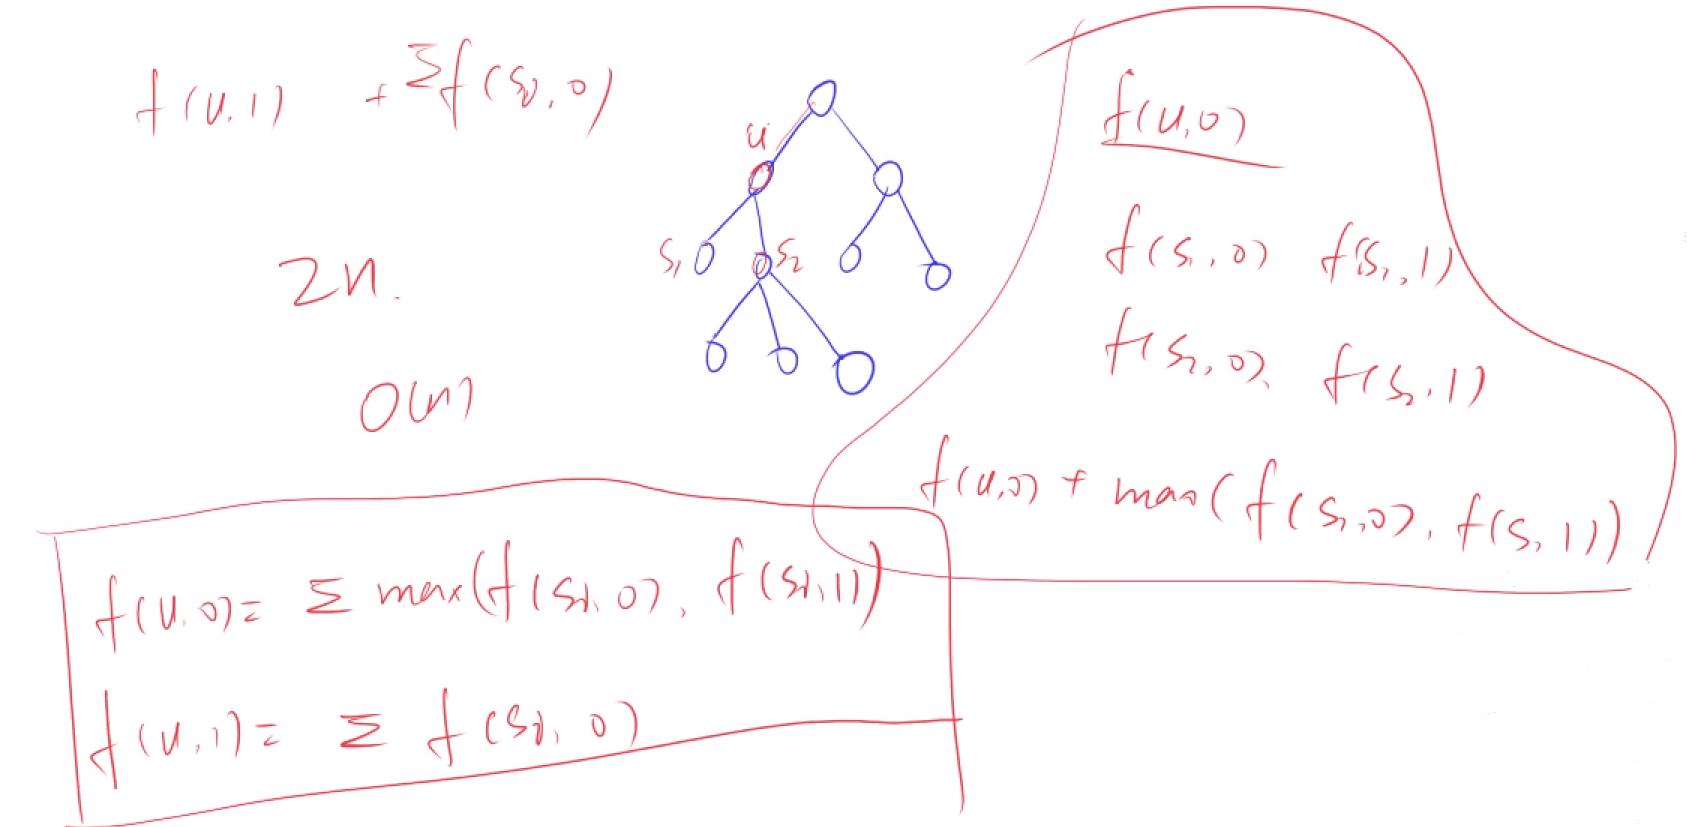 f(u,1) + Σf(si,0)
2n.
O(n)
u
s1
s2
f(u,0)
f(s1,0) f(s1,1)
f(s2,0), f(s2,1)
f(u,0) + max(f(s1,0), f(s1,1))
f(u,0)= Σ max(f(si,0), f(si,1))
f(u,1)= Σ f(si,0)